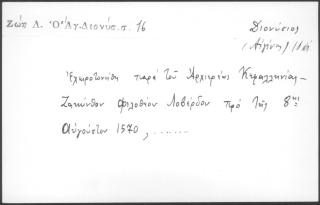 Ζώη Λ. Ὁ Ἅγ. Διονύσ. σ. 16
Διονύσιος
(Αἰγίνης)
Ἐχειροτονήθη παρά τοῦ Ἀρχιερέως Κεφαλληνίας-
Ζακύνθου Φιλοθέου Λοβέρδου πρό τῆς 8ης
Αὐγούστου 1570, .......